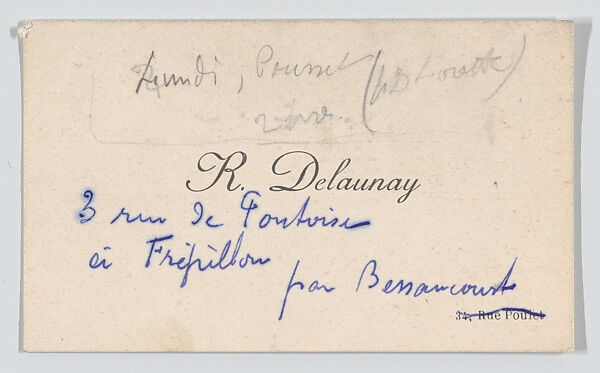 Lundi, Pousset (ND Lorette)
R. Delaunay
3 rue de Pontoise
à Frépillon
par Bessancourt
34, Rue Poulet